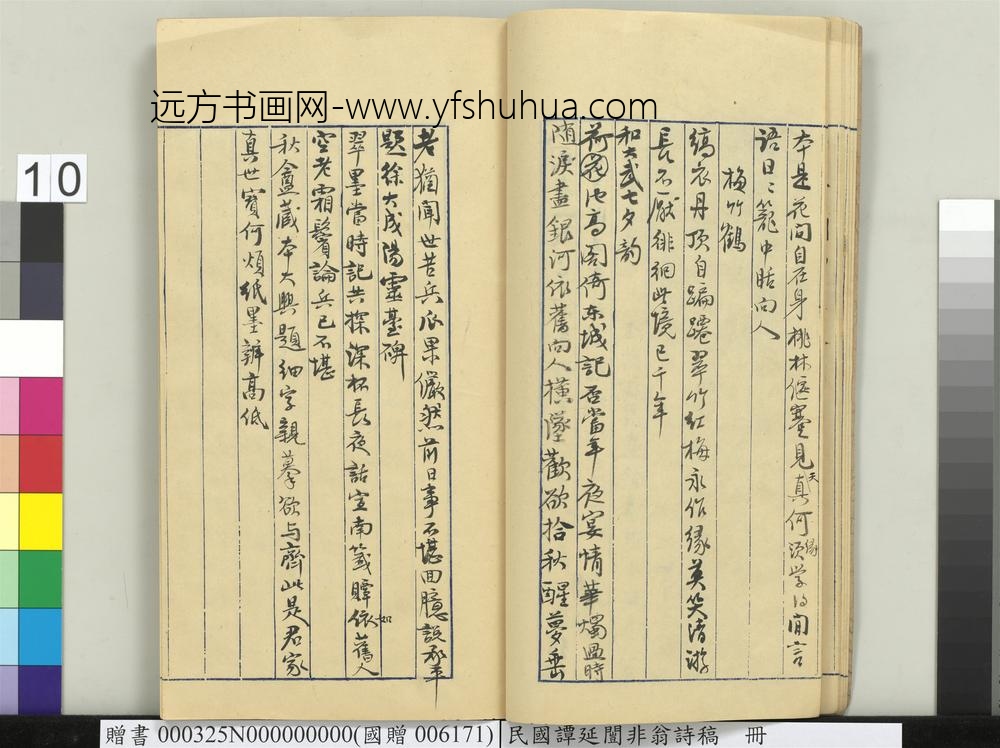 远方书画网-www.yfshuhua.com
本是花间自在身桃林偃蹇见天真何须缘学得闲言
語日〻籠中時向人
梅竹鶴
縞衣丹頂自蹁躚翠竹紅梅永作緣莫笑清游
長不厭徘徊此境已千年
和大武七夕韵
荷花池高閣倚東城記否當年夜宴情華燭過時
随淚盡銀河依舊向人橫墜歡欲拾秋醒夢垂
老猶聞世苦兵瓜果儼然前日事不堪回臆說承平
題徐大成陽靈臺碑
翠墨當時記共探深杯長夜話宣南箋暐依如舊人
空老霜鬢論兵已不堪
秋盦藏本大興題細字親摹欲与齊此是君家
真世寶何煩紙墨辨高低
10
贈書 000325N000000000(國贈 006171) 民國譚延闓非翁詩稿 冊